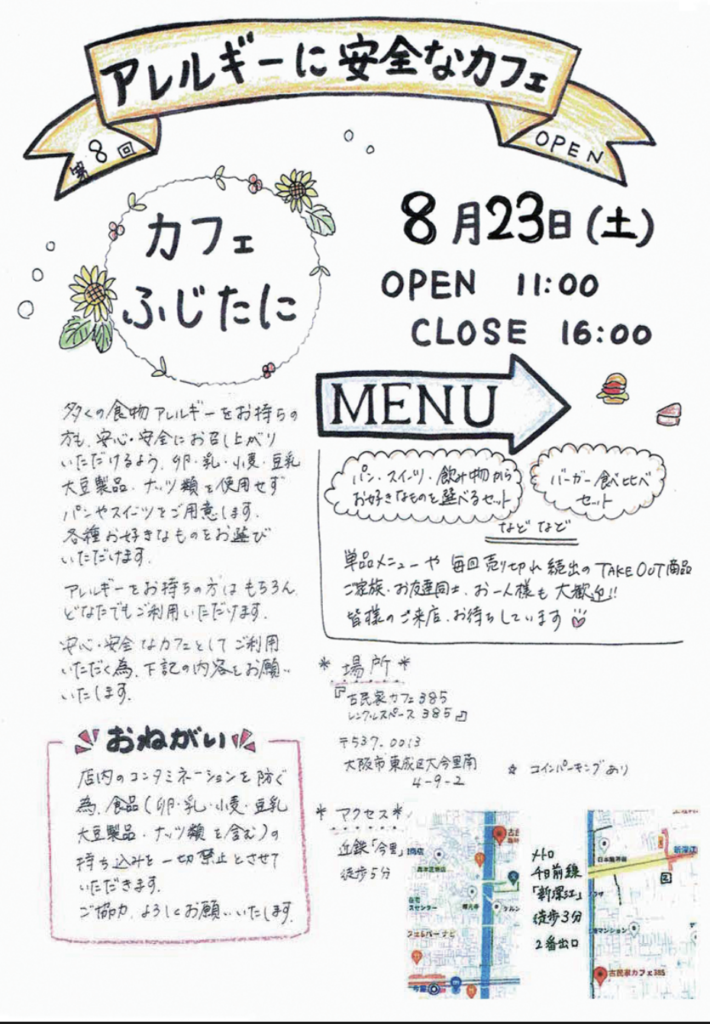 アレルギーに安全なカフェ
第8回
OPEN
カフェ
ふじたに
8月23日(土)
OPEN 11:00
CLOSE 16:00
多くの食物アレルギーをお持ちの
方も、安心・安全にお召し上がり
いただけるよう、卵・乳・小麦・豆乳
大豆製品・ナッツ類を使用せず
パンやスイーツをご用意します。
各種お好きなものをお選び
いただけます。
アレルギーをお持ちの方はもちろん
どなたでもご利用いただけます。
安心・安全なカフェとしてご利用
いただく為、下記の内容をお願い
いたします。
おねがい
店内のコンタミネーションを防ぐ
為、食品(卵・乳・小麦・豆乳
大豆製品・ナッツ類を含む)の
持ち込みを一切禁止とさせて
いただきます。
ご協力、よろしくお願いいたします。
MENU
パン・スイーツ・飲み物から
お好きなものを選べるセット
バーガー食べ比べ
セット
などなど
単品メニューや毎回売り切れ続出のTAKE OUT商品
ご家族・お友達同士、お一人様も大歓迎!!
皆様のご来店、お待ちしています
*場所*
『古民家カフェ385
レンタルスペース385』
〒537-0013
大阪市東成区大今里南
4-9-2
☆コインパーキングあり
*アクセス*
近鉄「今里」
徒歩5分
メトロ
千日前線
「新深江」
徒歩3分
2番出口
新深江
古民家カフェ385